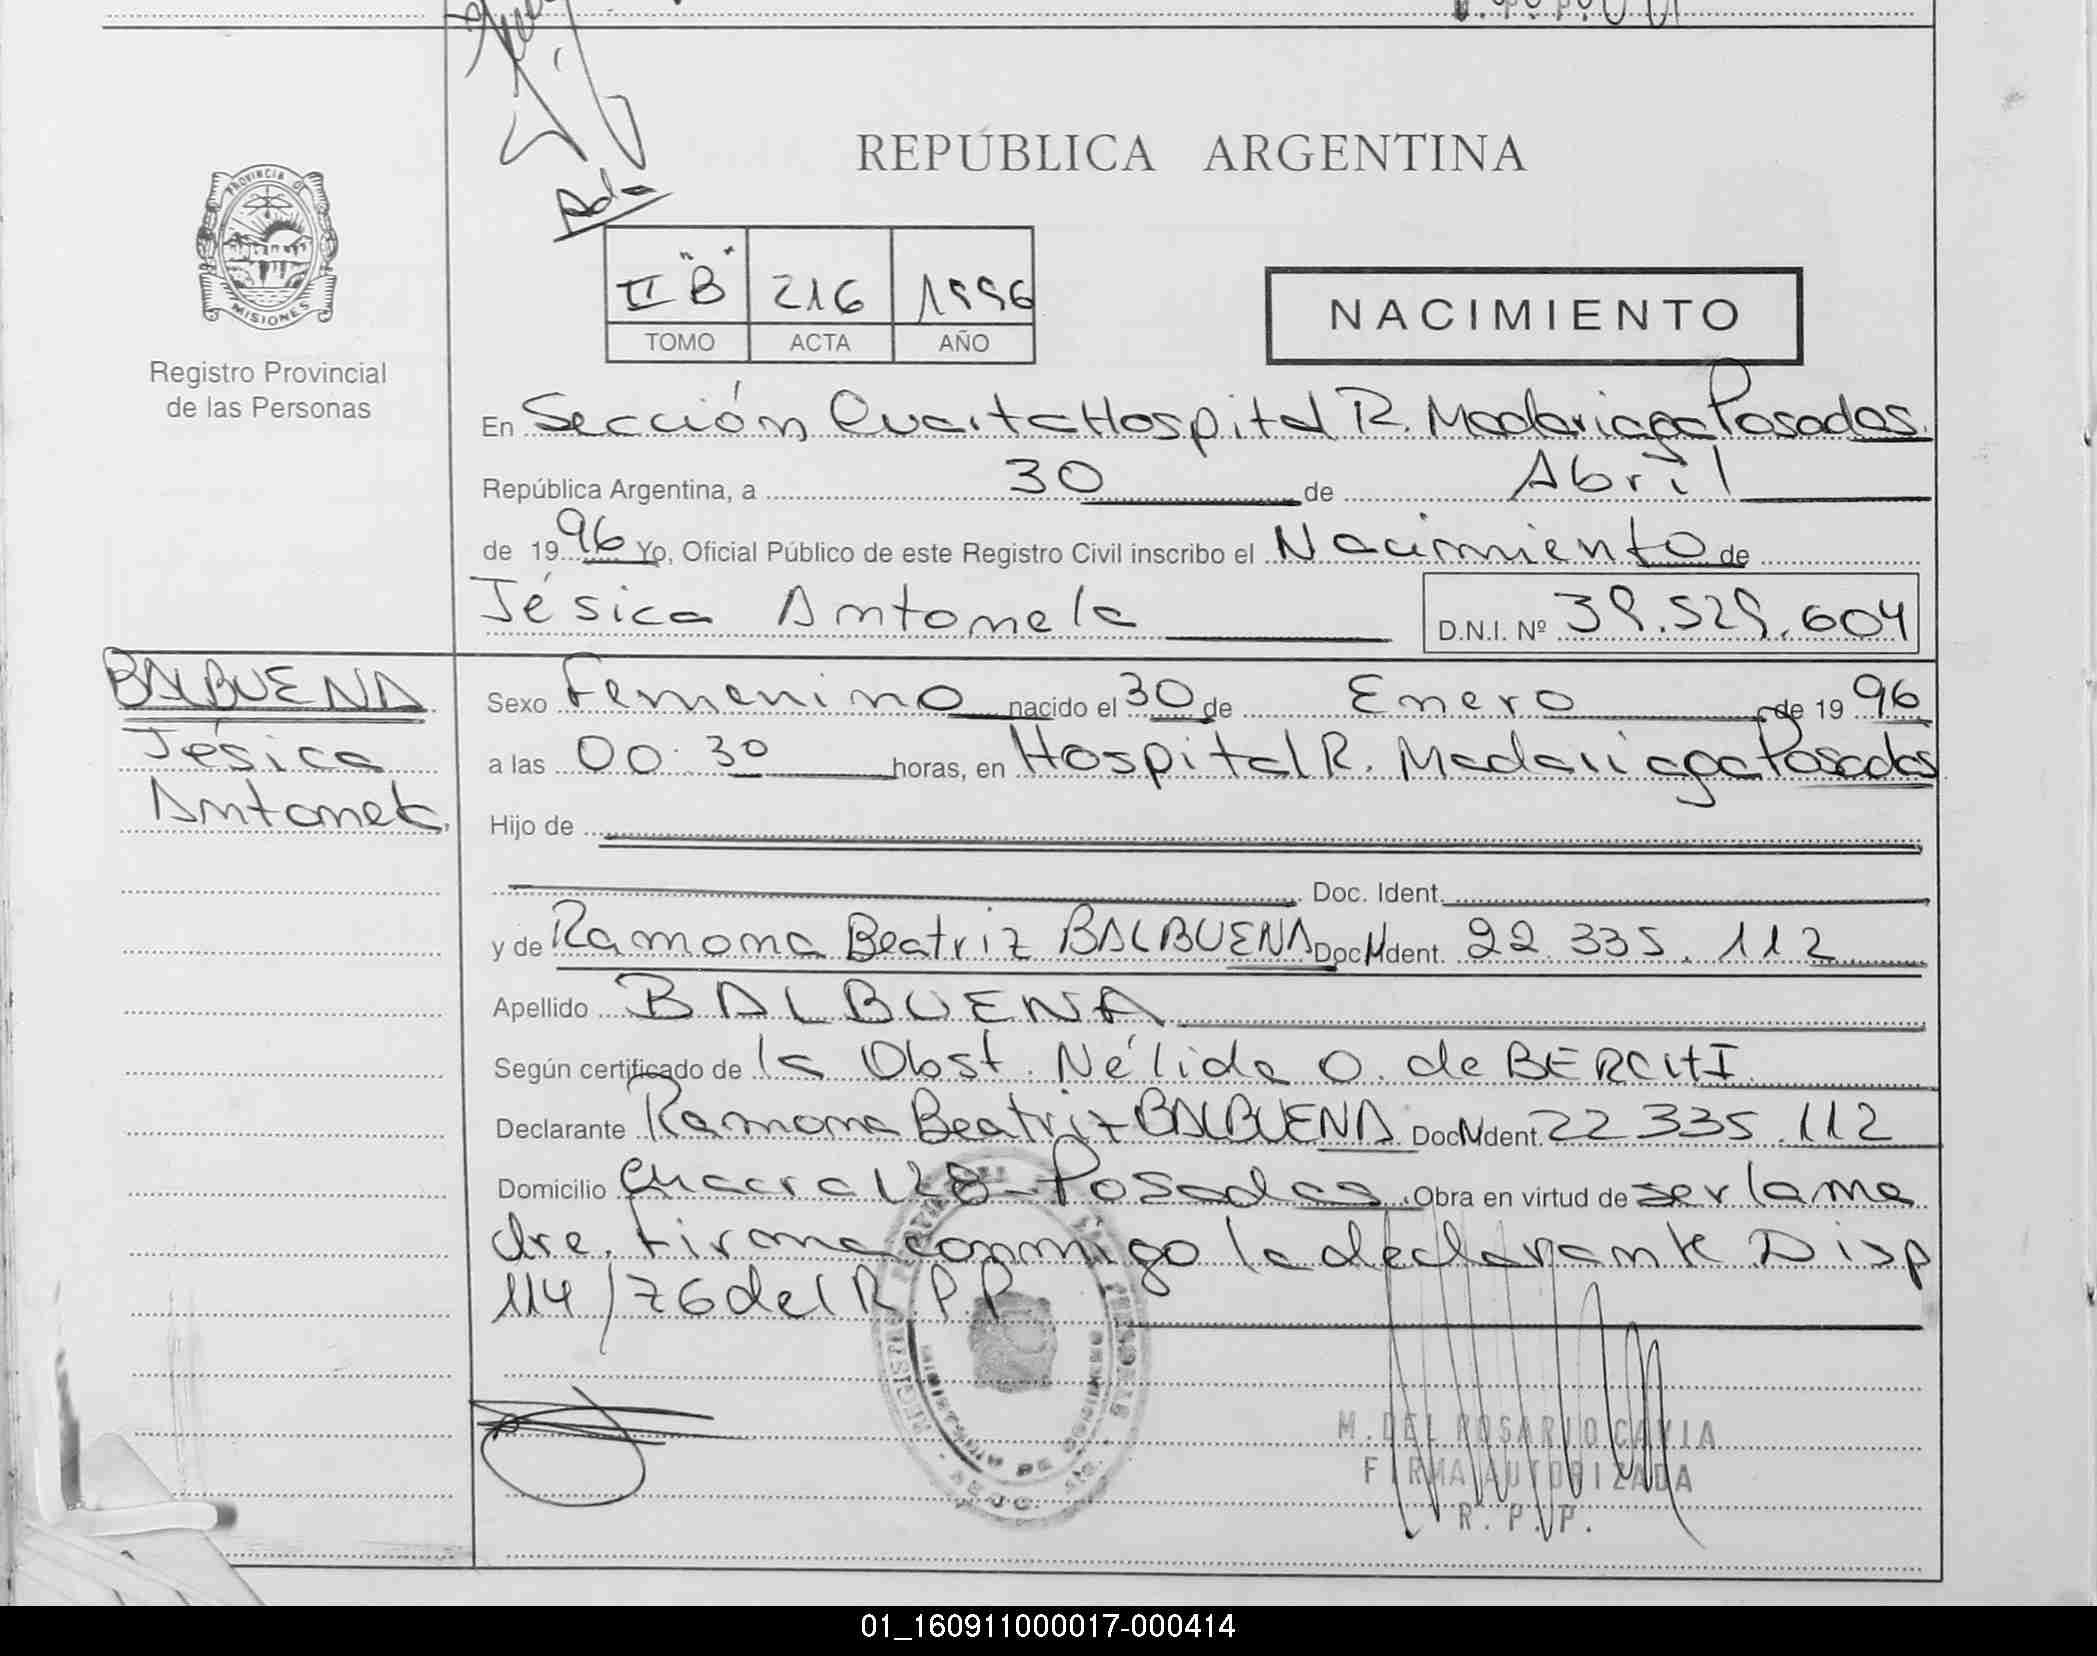 REPÚBLICA ARGENTINA
PROVINCIA DE
MISIONES
Registro Provincial
de las Personas
II "B" 216 1996
TOMO ACTA AÑO
NACIMIENTO
En Sección Cuarta Hospital R. Madariaga Posadas.
República Argentina, a 30 de Abril
de 1996 Yo, Oficial Público de este Registro Civil inscribo el Nacimiento de
Jésica Antonela
D.N.I. Nº 39.529.604
BALBUENA
Jésica
Antonela
Sexo Femenino nacido el 30 de Enero de 1996
a las 00:30 horas, en Hospital R. Madariaga Posadas
Hijo de
Doc. Ident.
y de Ramona Beatriz BALBUENA Doc. Ident. 22.335.112
Apellido BALBUENA
Según certificado de la Obst. Nélida O. de BERCHI
Declarante Ramona Beatriz BALBUENA Doc. Ident. 22.335.112
Domicilio Chacra 128 - Posadas. Obra en virtud de ser la ma
dre. Firma conmigo la declarante Disp
114/76 del R.P.P
M. DEL ROSARIO CAVIA
FIRMA AUTORIZADA
R. P. P.
01_160911000017-000414